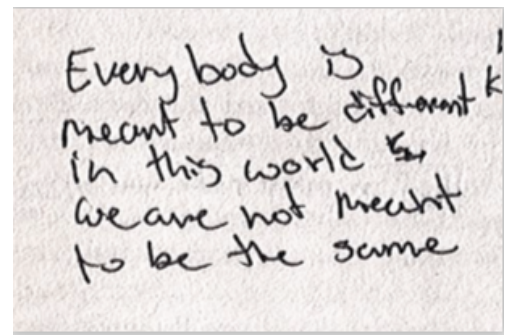 Everybody is
meant to be different
in this world &
we are not meant
to be the same